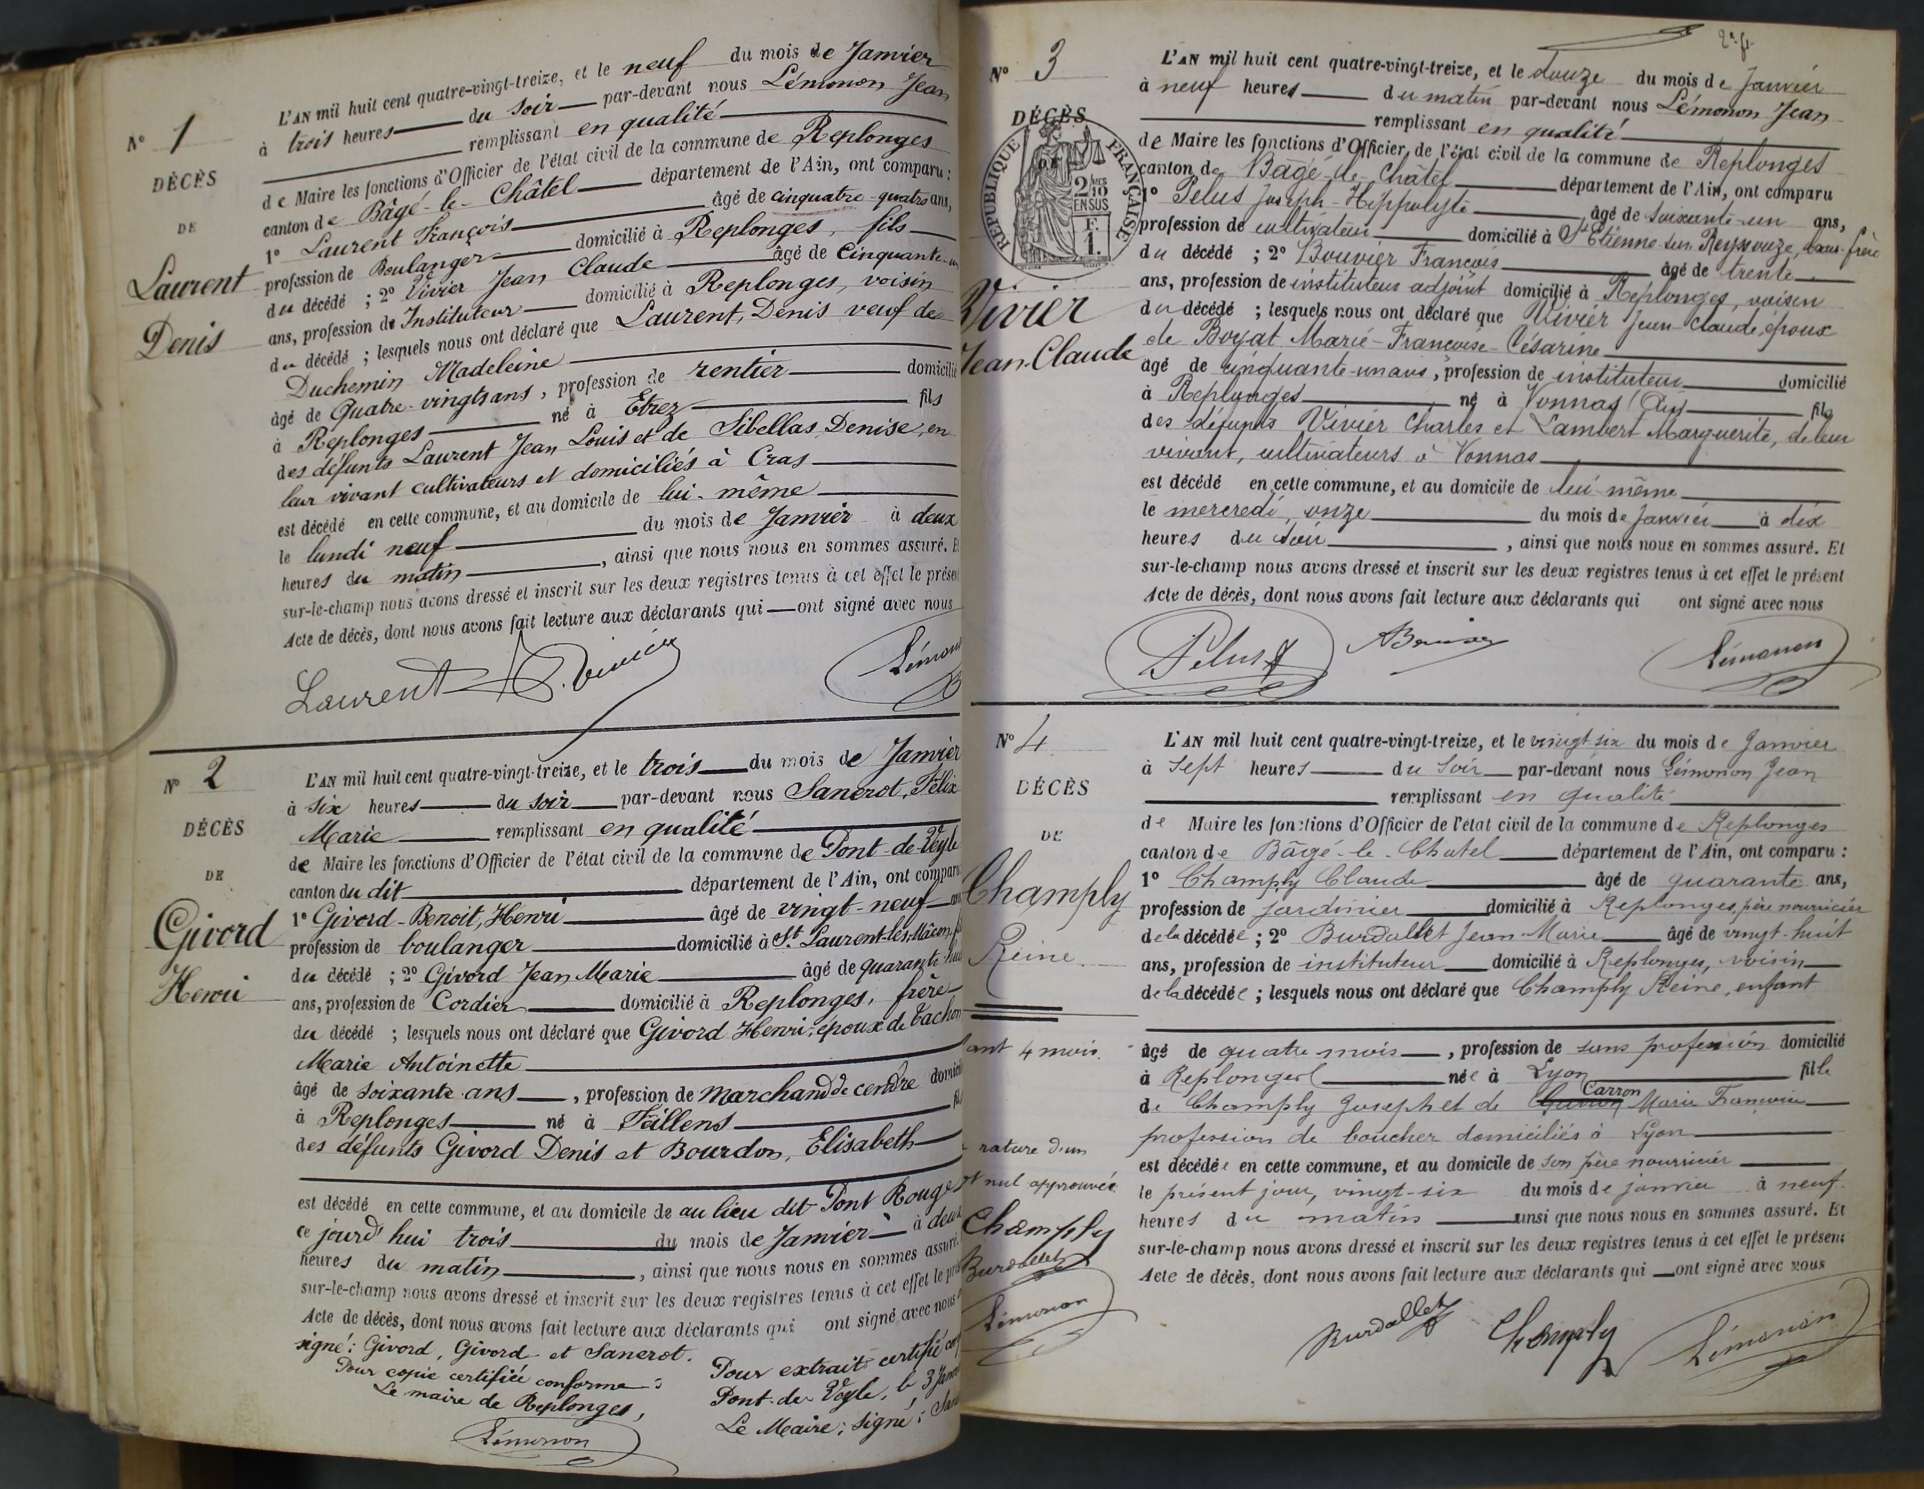 N° 1
DÉCÈS
DE
Laurent
Denis
L'AN mil huit cent quatre-vingt-treize, et le neuf du mois de Janvier
à trois heures du soir par-devant nous Lémonon Jean
remplissant en qualité
de Maire les fonctions d'Officier de l'état civil de la commune de Replonges
canton de Bâgé-le-Châtel département de l'Ain, ont comparu :
1° Laurent François âgé de cinquante-quatre ans,
profession de Boulanger domicilié à Replonges, fils
du décédé ; 2° Vivier Jean Claude âgé de Cinquante-un
ans, profession de Instituteur domicilié à Replonges, voisin
du décédé ; lesquels nous ont déclaré que Laurent, Denis veuf de
Duchemin Madeleine
âgé de Quatre-vingts ans, profession de rentier domicilié
à Replonges né à Etrez fils
des défunts Laurent Jean Louis et de Sibellas Denise, en
leur vivant cultivateurs et domiciliés à Cras
est décédé en cette commune, et au domicile de lui-même
le lundi neuf du mois de Janvier à deux
heures du matin, ainsi que nous nous en sommes assuré. Et
sur-le-champ nous avons dressé et inscrit sur les deux registres tenus à cet effet le présent
Acte de décès, dont nous avons fait lecture aux déclarants qui ont signé avec nous
Laurent Vivier Lémonon
N° 2
DÉCÈS
DE
Givord
Henri
L'AN mil huit cent quatre-vingt-treize, et le trois du mois de Janvier
à six heures du soir par-devant nous Sancrot, Félix
Marie remplissant en qualité
de Maire les fonctions d'Officier de l'état civil de la commune de Pont-de-Veyle
canton du dit département de l'Ain, ont comparu
1° Givord-Benoit, Henri âgé de vingt-neuf ans
profession de boulanger domicilié à St Laurent-lès-Mâcon, f
du décédé ; 2° Givord Jean Marie âgé de quarante-huit
ans, profession de Cordier domicilié à Replonges, frère
du décédé ; lesquels nous ont déclaré que Givord Henri, époux de Cachon
Marie Antoinette
âgé de soixante ans, profession de marchand de cendre domicilié
à Replonges né à Feillens fils
des défunts Givord Denis et Bourdon, Elisabeth
est décédé en cette commune, et au domicile de au lieu dit Pont Rouge
ce jourd'hui trois du mois de Janvier à deux
heures du matin, ainsi que nous nous en sommes assuré.
sur-le-champ nous avons dressé et inscrit sur les deux registres tenus à cet effet le présent
Acte de décès, dont nous avons fait lecture aux déclarants qui ont signé avec nous
signé : Givord, Givord et Sancrot.
Pour copie certifiée conforme :
Le maire de Replonges,
Lémonon
Pour extrait certifié
Pont-de-Veyle, le 3 Janv
Le Maire : signé : San
N° 3
DÉCÈS
DE
RÉPUBLIQUE FRANÇAISE
2/10 EN SUS
F. 1.
Vivier
Jean-Claude
L'AN mil huit cent quatre-vingt-treize, et le douze du mois de Janvier
à neuf heures du matin par-devant nous Lémonon Jean
remplissant en qualité
de Maire les fonctions d'Officier de l'état civil de la commune de Replonges
canton de Bâgé-le-Châtel département de l'Ain, ont comparu
1° Pelus Joseph-Hippolyte âgé de soixante-un ans,
profession de cultivateur domicilié à St Etienne-sur-Reyssouze, beau-frère
du décédé ; 2° Bouvier François âgé de trente
ans, profession de instituteur adjoint domicilié à Replonges, voisin
du décédé ; lesquels nous ont déclaré que Vivier Jean-Claude, époux
de Boyat Marie-Françoise-Césarine
âgé de cinquante-un ans, profession de instituteur domicilié
à Replonges né à Vonnas (Ain) fils
des défunts Vivier Charles et Lambert Marguerite, de leur
vivant, cultivateurs à Vonnas
est décédé en cette commune, et au domicile de lui-même
le mercredi, onze du mois de Janvier à dix
heures du soir, ainsi que nous nous en sommes assuré. Et
sur-le-champ nous avons dressé et inscrit sur les deux registres tenus à cet effet le présent
Acte de décès, dont nous avons fait lecture aux déclarants qui ont signé avec nous
Pelus Lémonon
N° 4
DÉCÈS
DE
Champly
Reine
ant 4 mois.
rature d'un
mot nul approuvée
Champly
Burdallet
Lémonon
L'AN mil huit cent quatre-vingt-treize, et le vingt-six du mois de Janvier
à sept heures du soir par-devant nous Lémonon Jean
remplissant en qualité
de Maire les fonctions d'Officier de l'état civil de la commune de Replonges
canton de Bâgé-le-Chatel département de l'Ain, ont comparu :
1° Champly Claude âgé de quarante ans,
profession de jardinier domicilié à Replonges, père nourricier
de la décédée ; 2° Burdallet Jean Marie âgé de vingt-huit
ans, profession de instituteur domicilié à Replonges, voisin
de la décédée ; lesquels nous ont déclaré que Champly Reine, enfant
âgé de quatre mois, profession de sans profession domicilié
à Replonges née à Lyon fille
Carron
de Champly Joseph et de Marie Françoise
profession de boucher domiciliés à Lyon
est décédée en cette commune, et au domicile de son père nourricier
le présent jour, vingt-six du mois de janvier à neuf
heures du matin ainsi que nous nous en sommes assuré. Et
sur-le-champ nous avons dressé et inscrit sur les deux registres tenus à cet effet le présent
Acte de décès, dont nous avons fait lecture aux déclarants qui ont signé avec nous
Burdallet Champly Lémonon